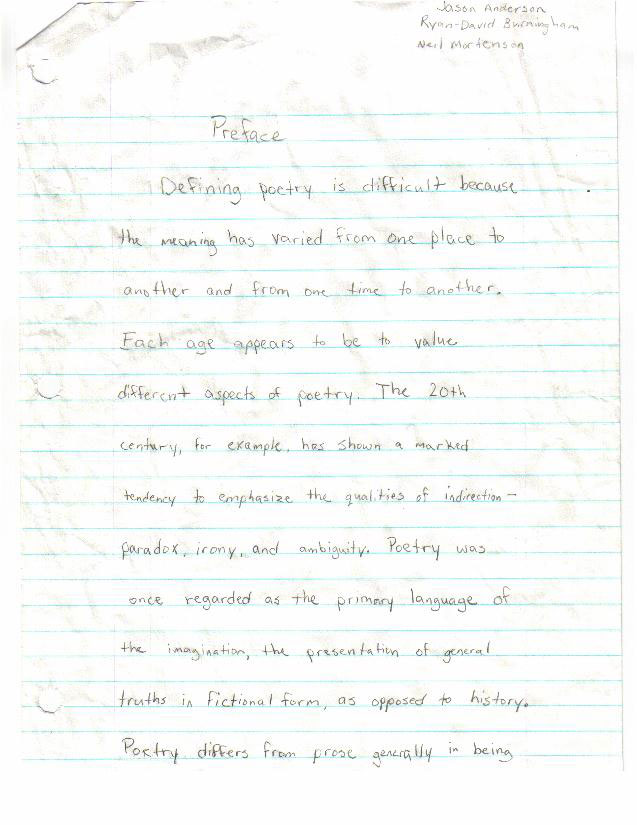 Jason Anderson
Ryan-David Burningham
Neil Mortenson
Preface
Defining poetry is difficult because
the meaning has varied from one place to
another and from one time to another.
Each age appears to be to value
different aspects of poetry. The 20th
century, for example, has shown a marked
tendency to emphasize the qualities of indirection-
paradox, irony, and ambiguity. Poetry was
once regarded as the primary language of
the imagination, the presentation of general
truths in fictional form, as opposed to history.
Poetry differs from prose generally in being